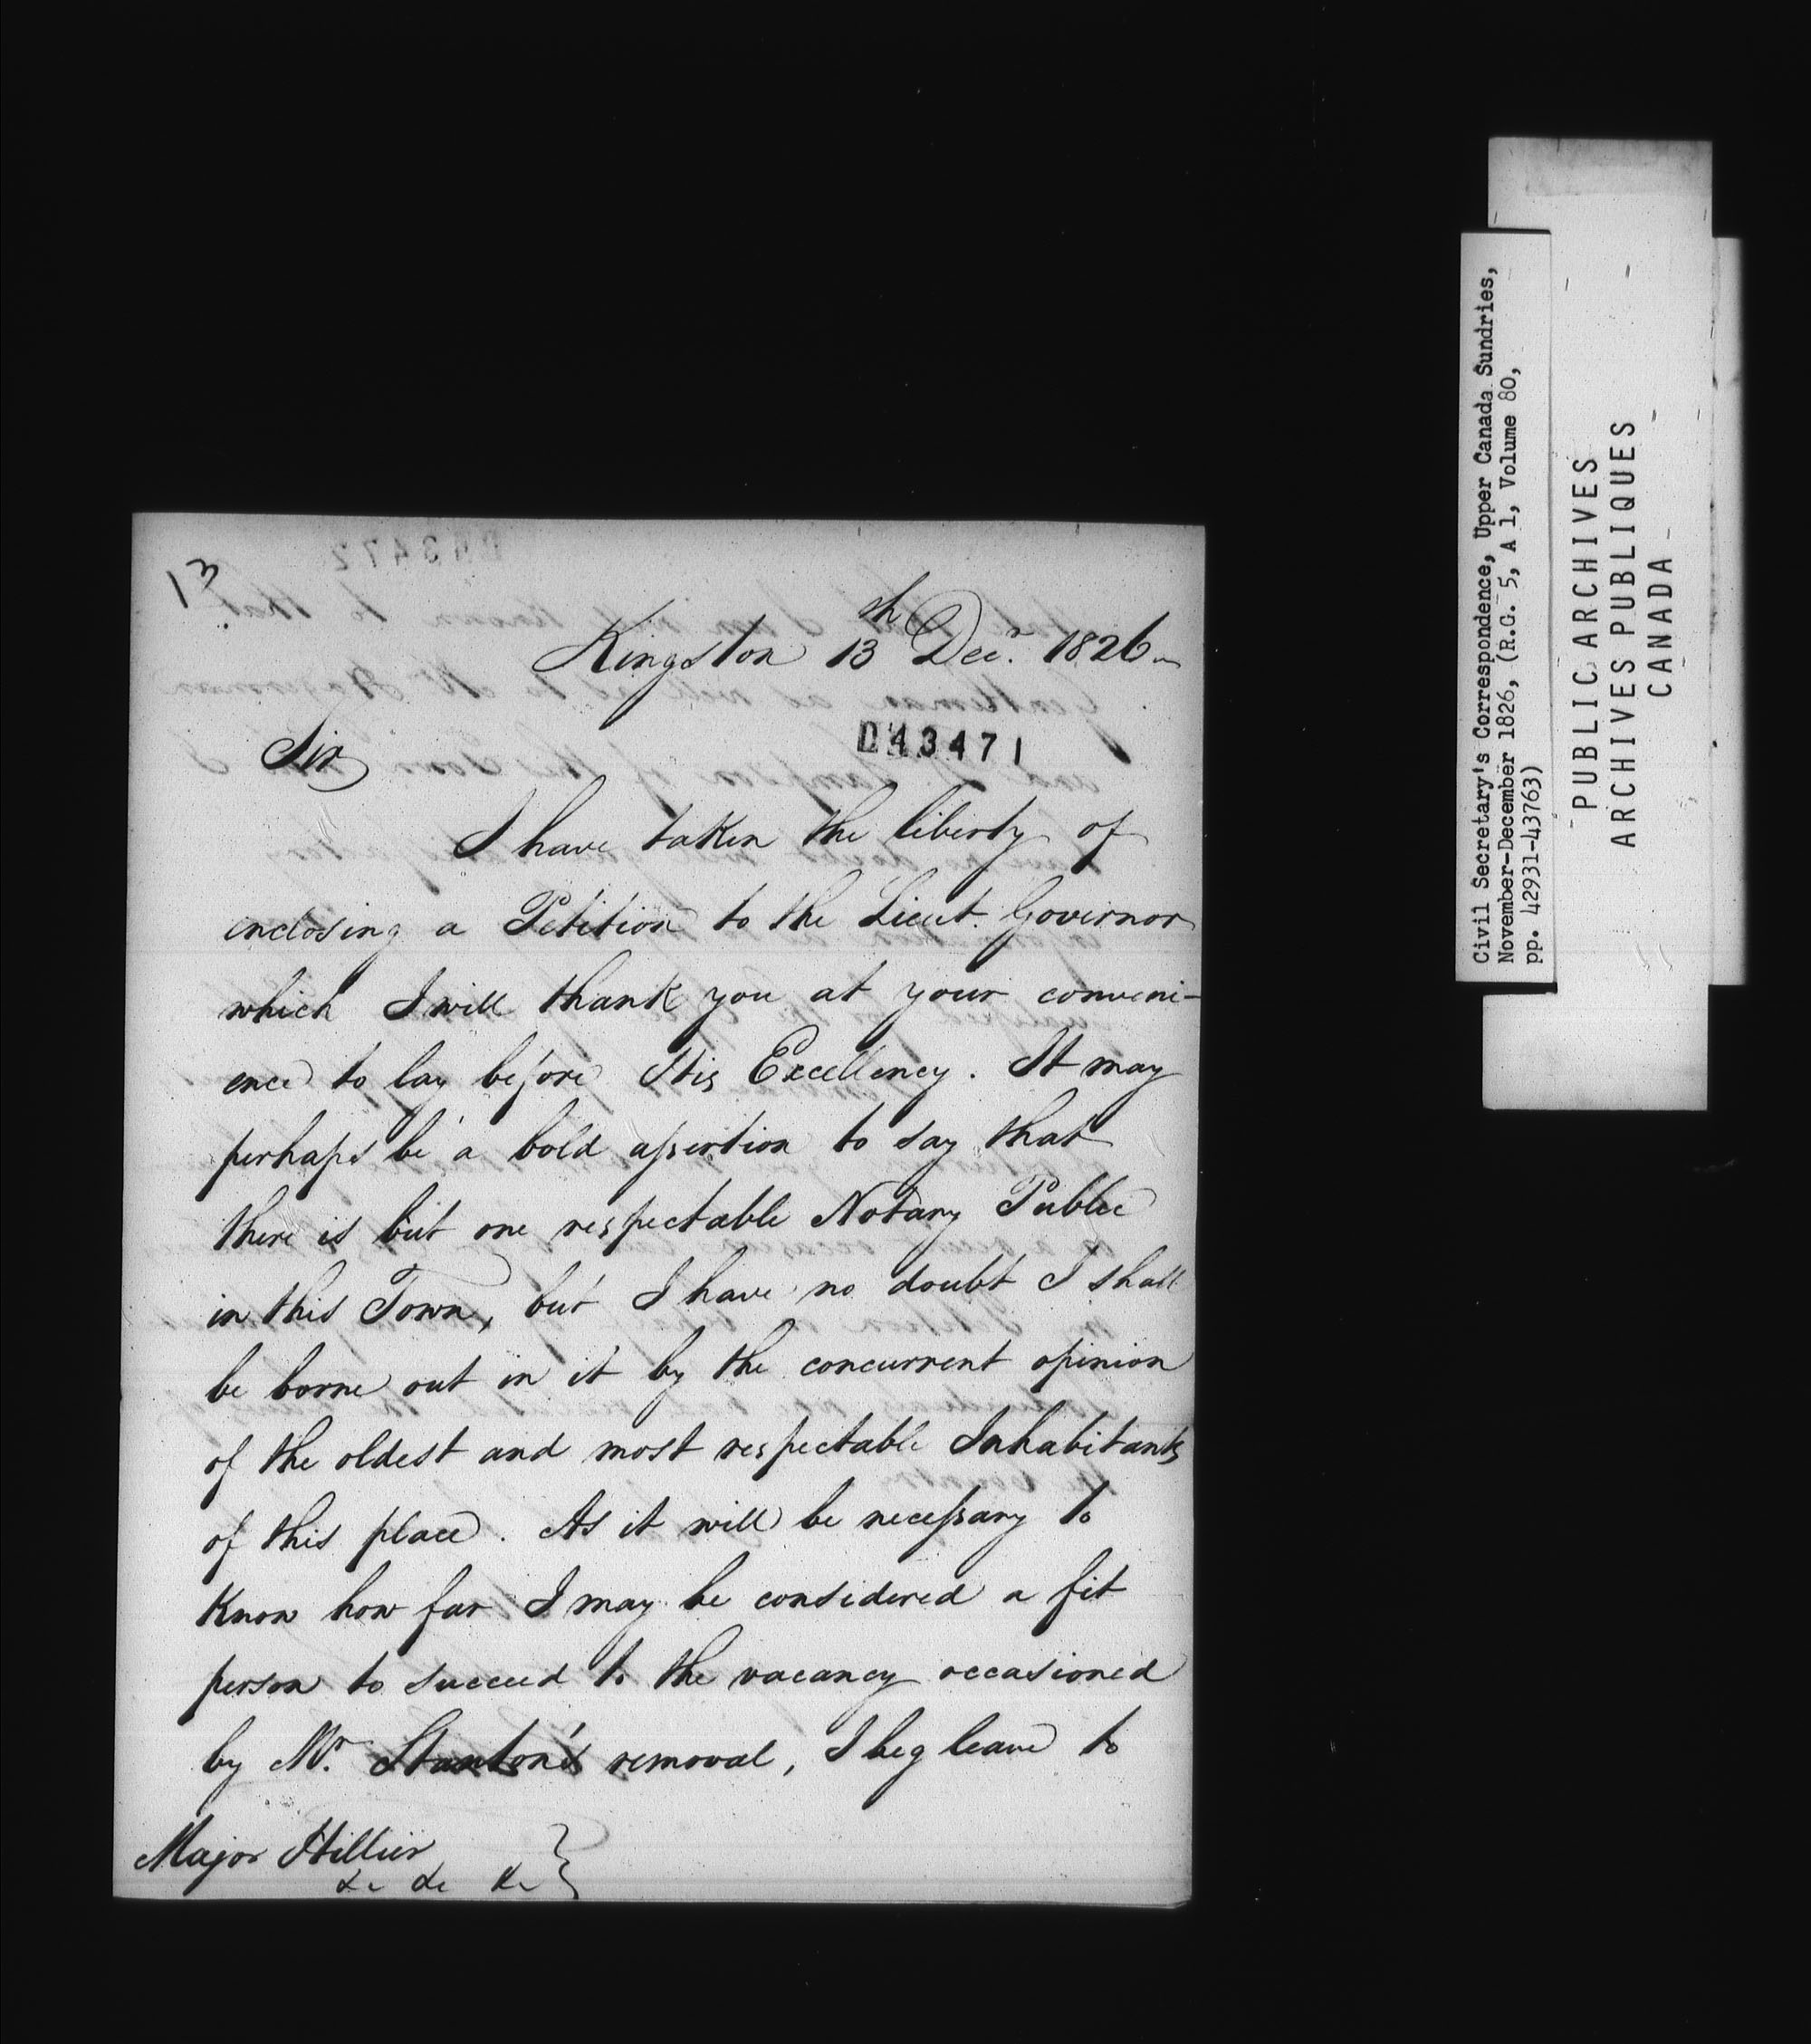 13
Kingston 13th Decr. 1826
043471
Sir
I have taken the liberty of
enclosing a Petition to the Lieut. Governor
which I will thank you at your conveni-
ence to lay before His Excellency. It may
perhaps be a bold assertion to say that
there is but one respectable Notary Public
in this Town, but I have no doubt I shall
be borne out in it by the concurrent opinion
of the oldest and most respectable Inhabitants
of this place. As it will be necessary to
know how far I may be considered a fit
person to succeed to the vacancy occasioned
by Mr. Stanton's removal, I beg leave to
Major Hillier
&c &c &c
Civil Secretary's Correspondence, Upper Canada Sundries,
November-December 1826, (R.G. 5, A 1, Volume 80,
pp. 42931-43763)
PUBLIC ARCHIVES
ARCHIVES PUBLIQUES
CANADA